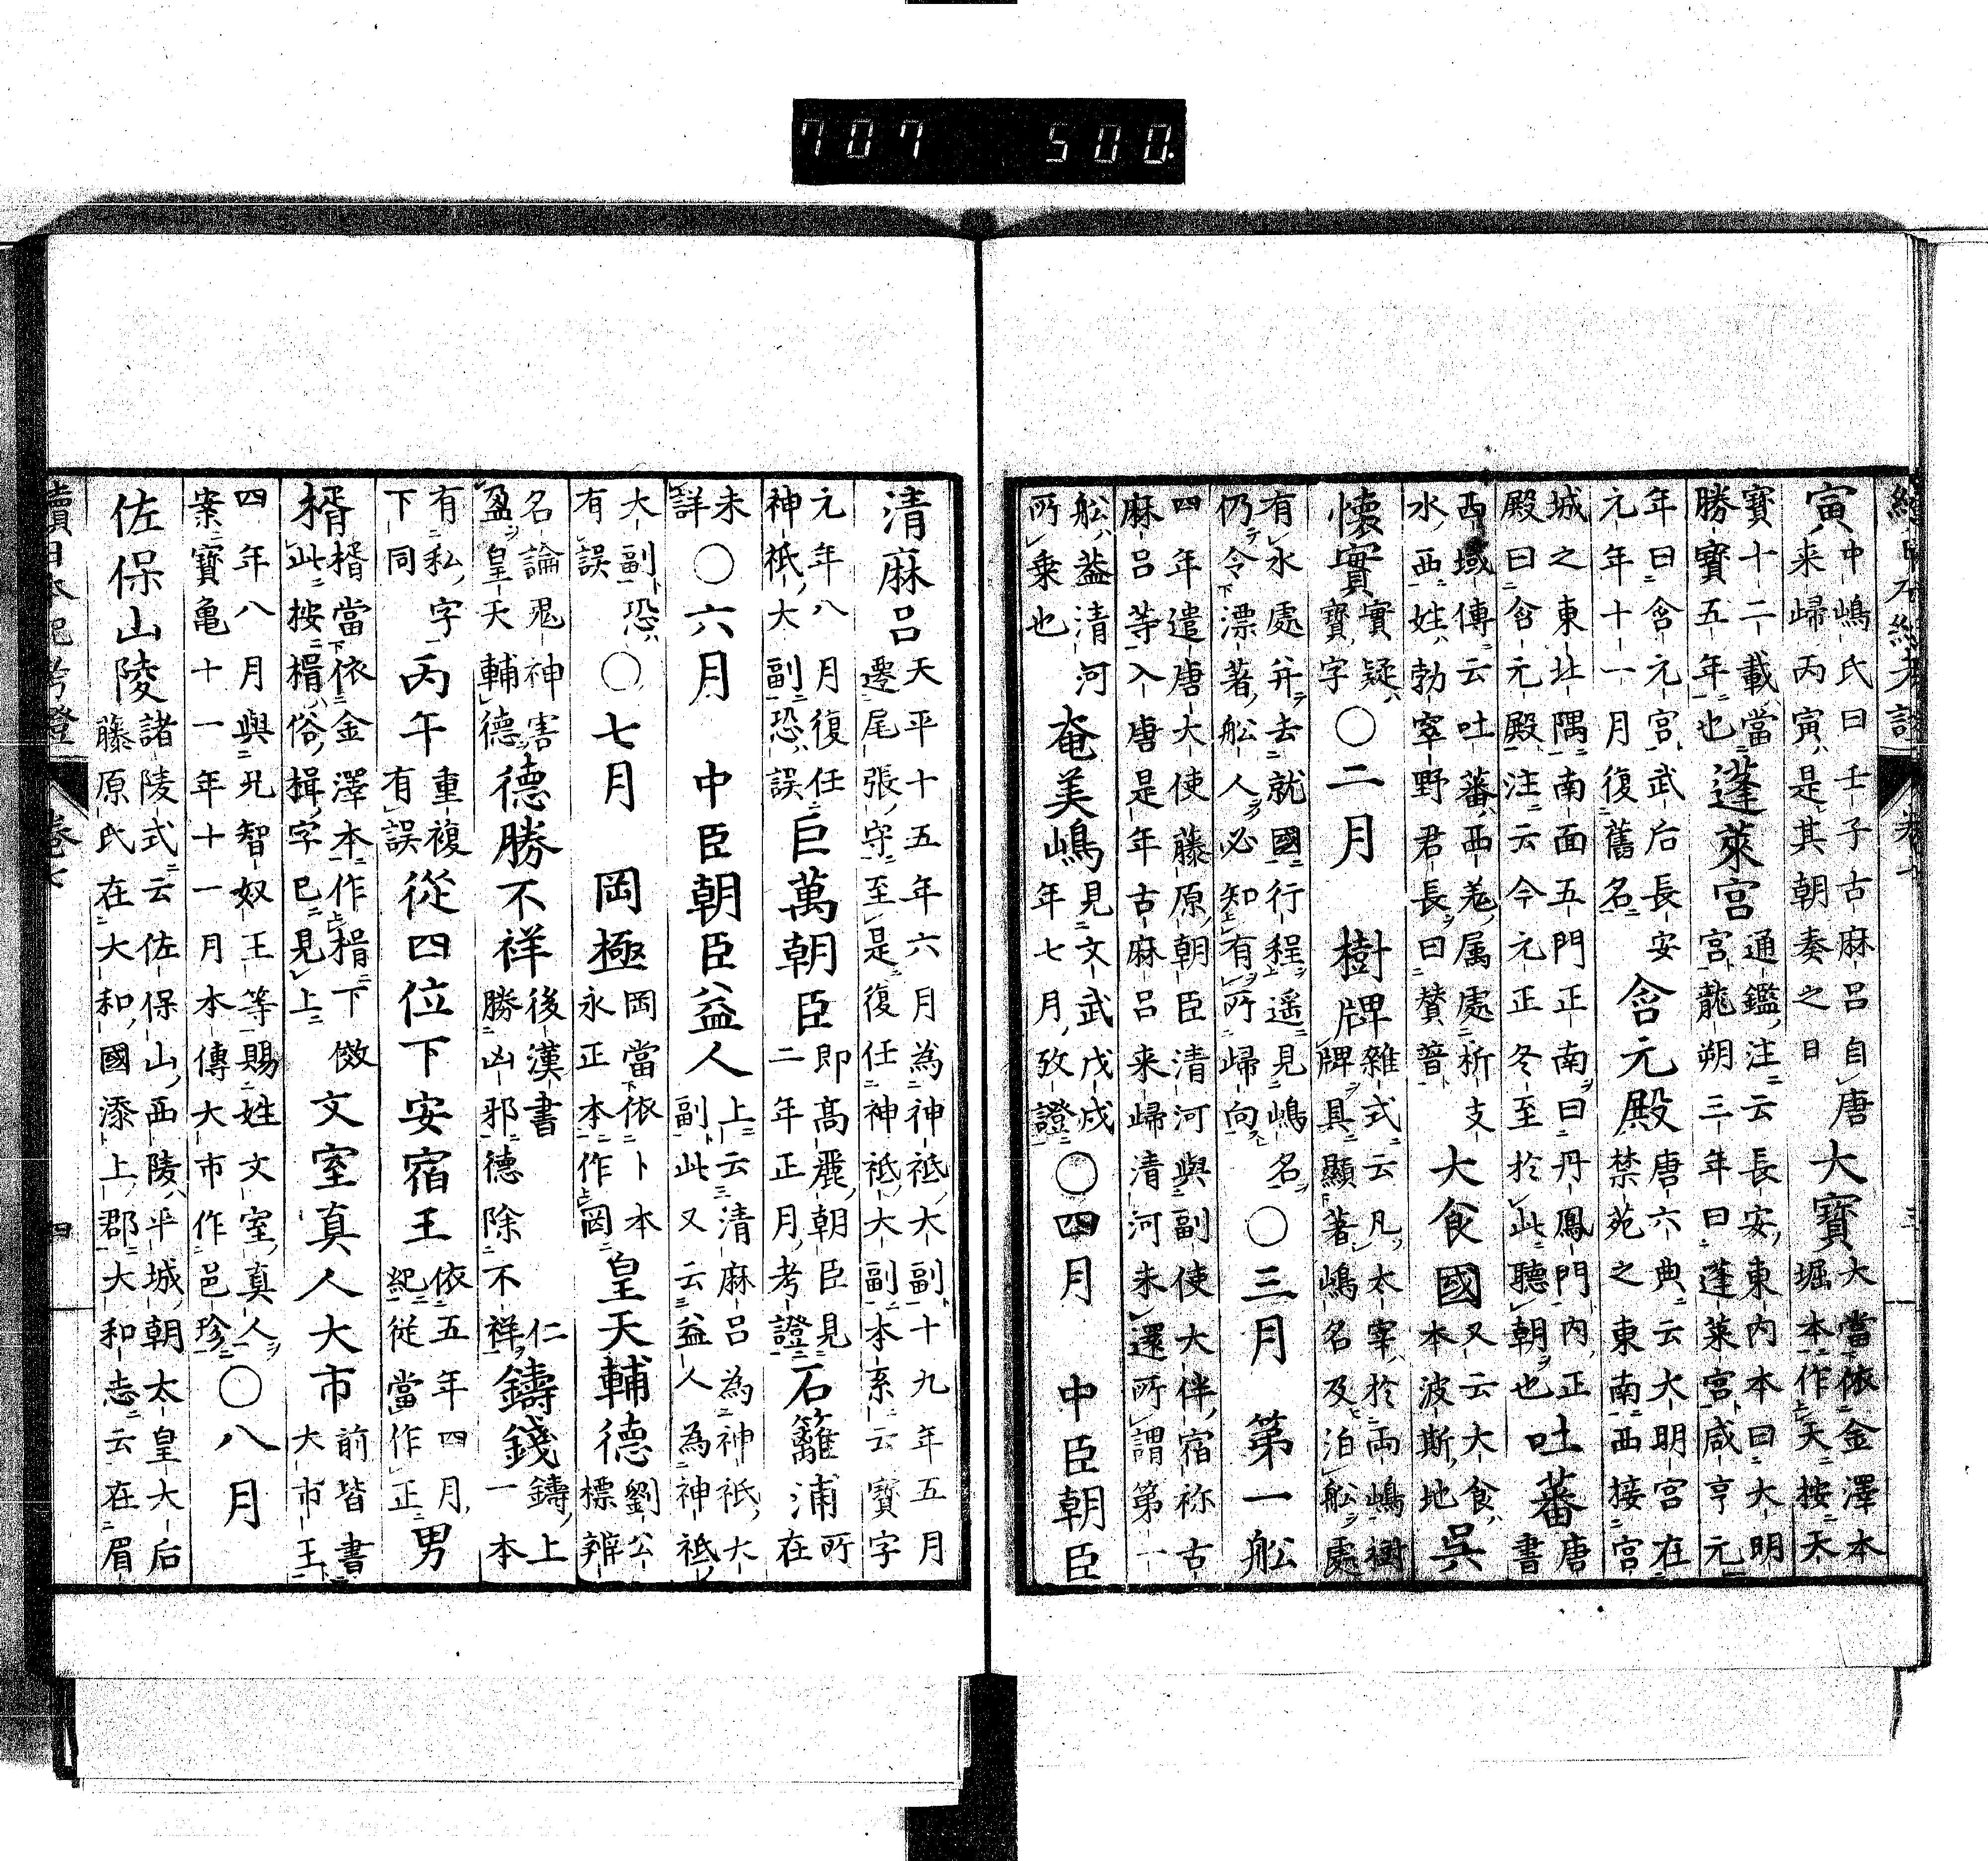 續日本紀考證 卷七
寅 中嶋氏曰壬子古麻呂自来歸丙寅是其朝奏之日 唐大寶 大當依金澤本堀本作天按天
寶十二載當勝寶五年也 蓬萊宮 通鑑注云長安東内本曰大明宮龍朔三年曰蓬萊宮咸亨元
年曰含元宮武后長安元年十一月復舊名 含元殿 唐六典云大明宮在禁苑之東南西接宮
城之東北隅南面五門正南曰丹鳳門内正殿曰含元殿注云今元正冬至於此聽朝也 吐蕃 唐書
西域傳云吐蕃西羌属處析支水西姓勃窣野君長曰賛普 大食國 又云大食本波斯地 呉
懐實 實疑寶字 ○二月 樹牌 雜式云凡太宰於両嶋樹牌具顯著嶋名及泊舩處
有水處并去就國行程遥見嶋名仍令漂著舩人必知有所歸向 ○三月 第一舩
四年遣唐大使藤原朝臣清河與副使大伴宿祢古麻呂等入唐是年古麻呂来歸清河未還所謂第一
舩葢清河所乗也 奄美嶋 見文武戊戌年七月攷證 ○四月 中臣朝臣
清麻呂 天平十五年六月為神祇大副十九年五月遷尾張守至是復任神祇大副本系云寶字
元年八月復任神祇大副恐誤 巨萬朝臣 即高麗朝臣見二年正月考證 石籬浦 所在
未詳 ○六月 中臣朝臣益人 上云清麻呂為神祇大副此又云益人為神祇
大副恐有誤 ○七月 岡極 岡當依卜本永正本作罔 皇天輔德 劉公標辨
名論鬼神害盈皇天輔德 德勝不祥 後漢書 仁勝凶邪德除不祥 鑄錢 鑄上一本
有私字下同 丙午 重複有誤 從四位下安宿王 依五年四月紀従當作正 男
楈 楈當依金澤本作楫下傚此按楫俗楫字已見上 文室真人大市 前皆書大市王
四年八月與兄智奴王等賜姓文室真人案寶亀十一年十一月本傳大市作邑珍 ○八月
佐保山陵 諸陵式云佐保山西陵平城朝太皇大后藤原氏在大和國添上郡大和志云在眉
續日本紀考證 卷七 四